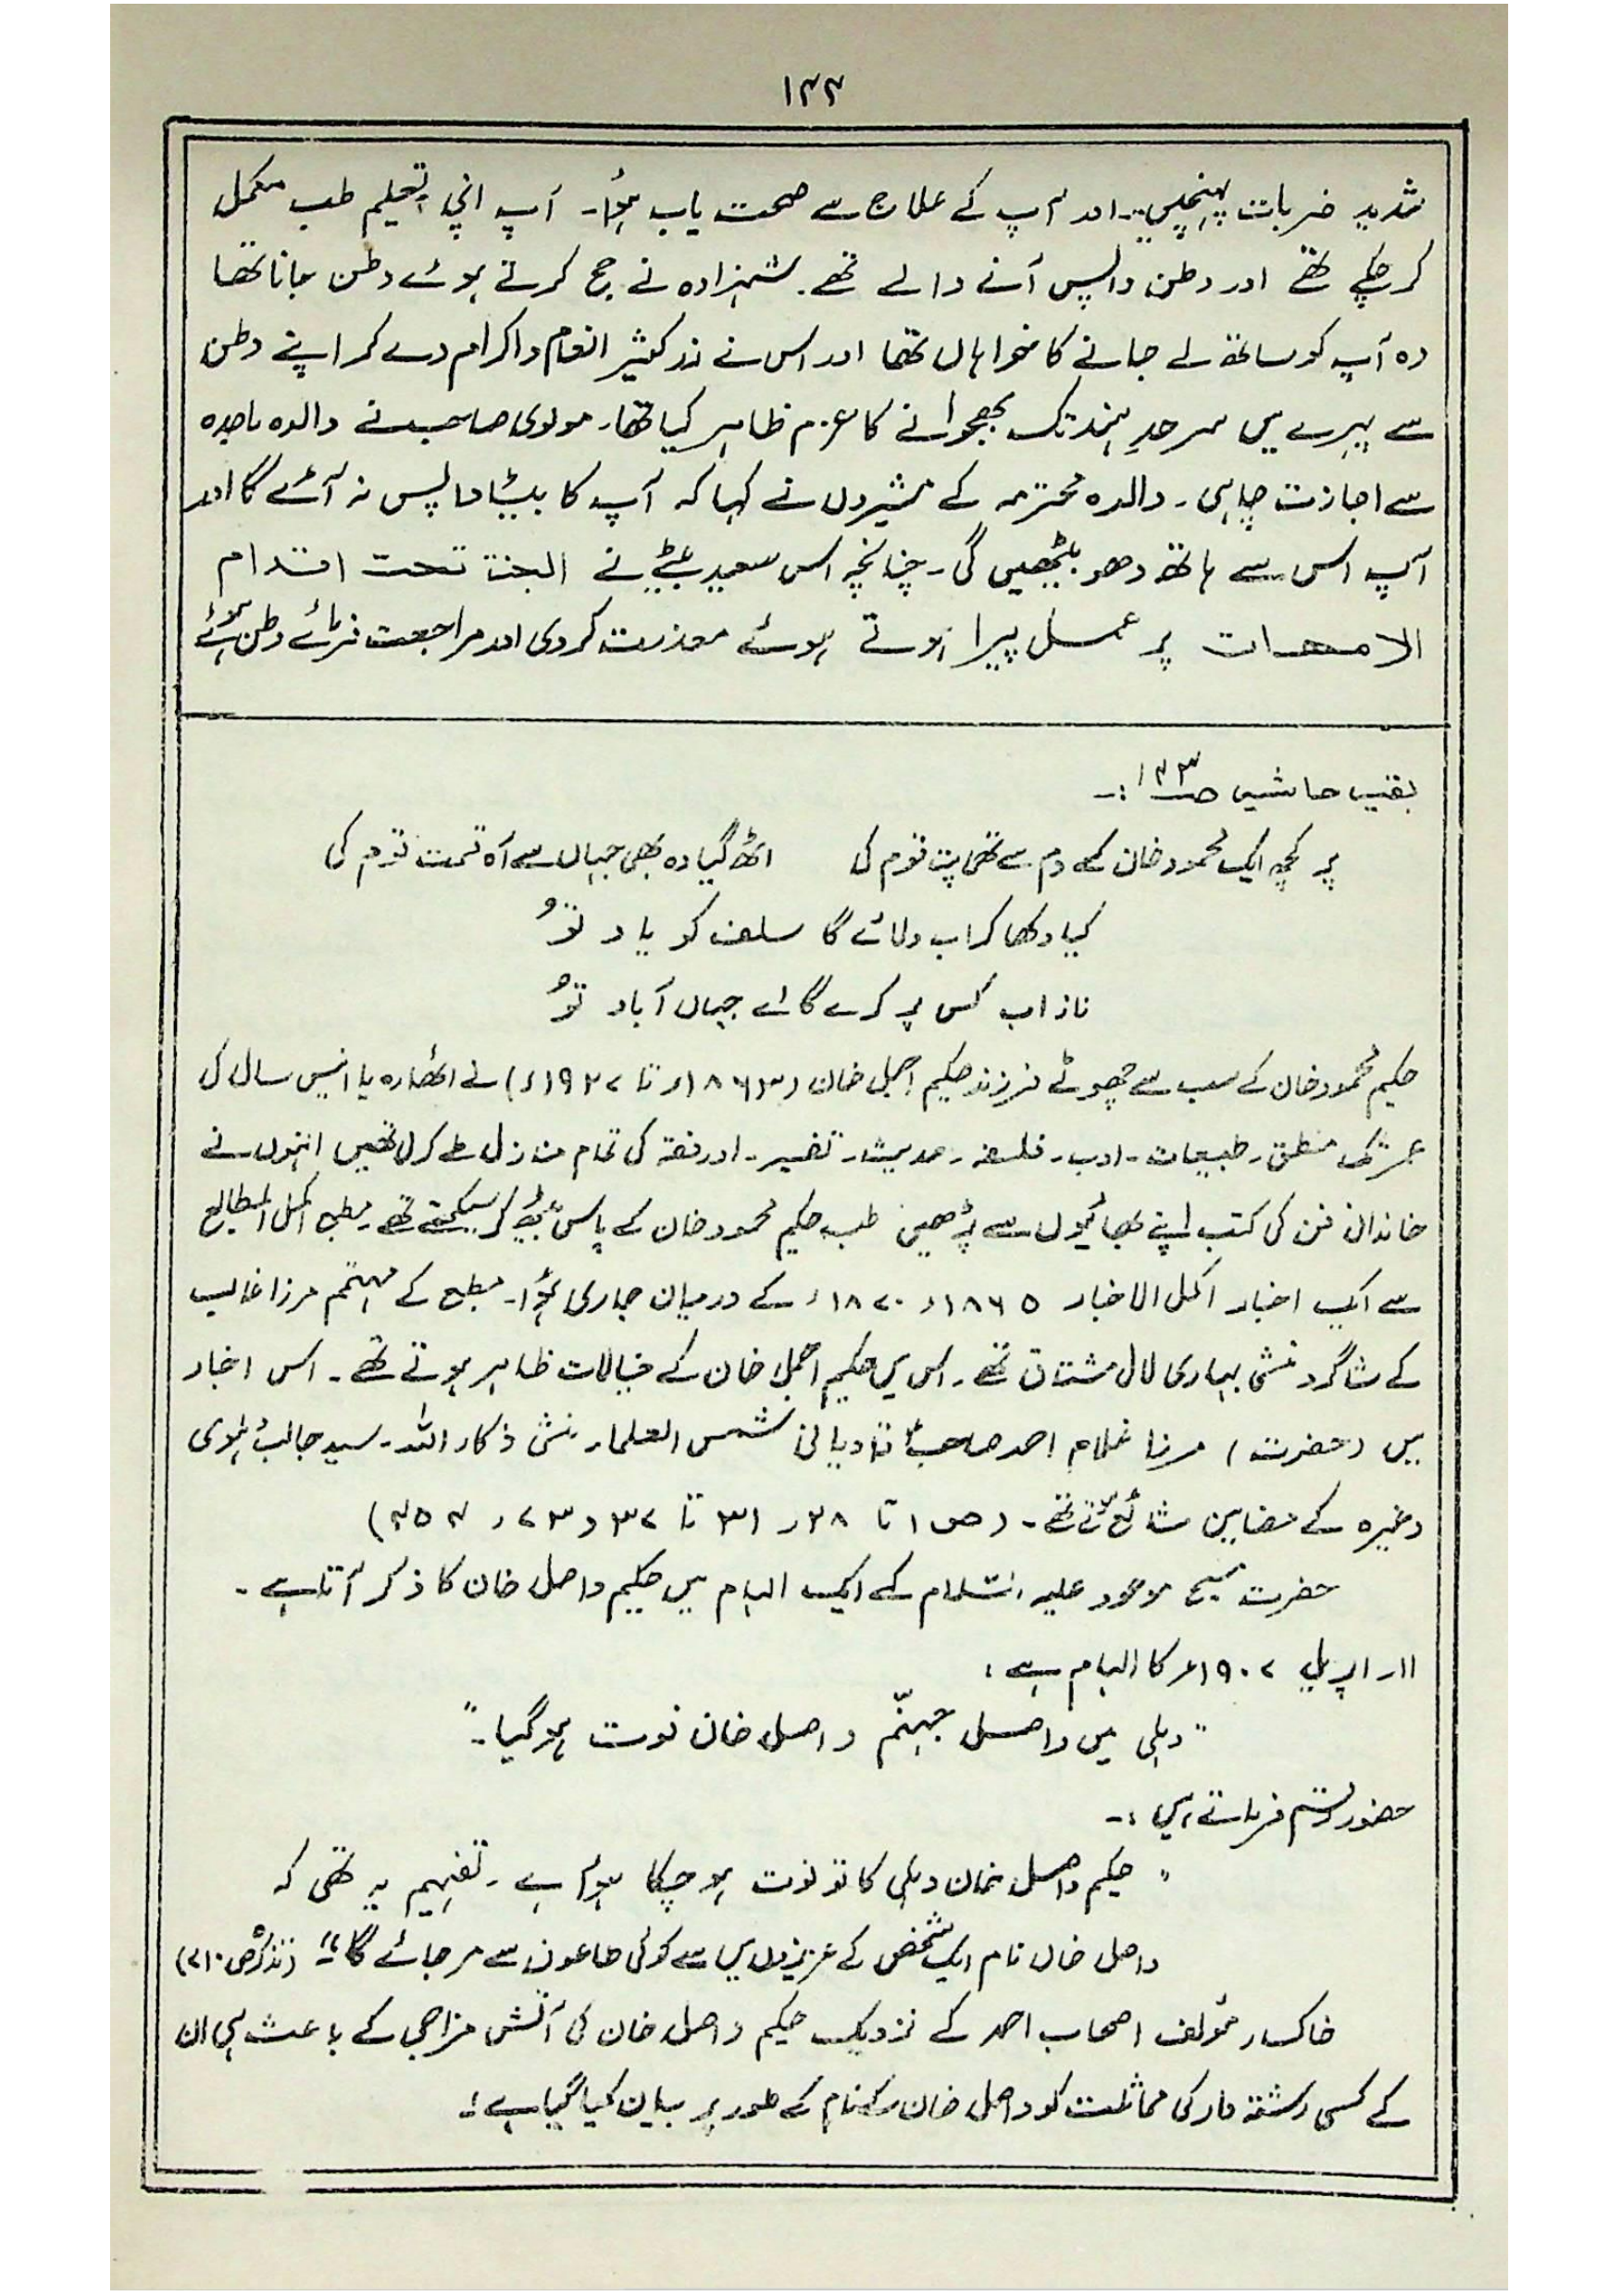 ۱۴۴
شدید ضربات پہنچیں۔ اور آپ کے علاج سے صحت یاب ہؤا۔ آپ اپنی تعلیم طب مکمل
کر چکے تھے اور وطن واپس آنے والے تھے۔ شہزادہ نے حج کرتے ہوئے وطن جانا تھا
وہ آپ کو ساتھ لے جانے کا خواہاں تھا اور اس نے زرِ کثیر انعام و اکرام دے کر اپنے وطن
سے پہرے میں سرحدِ ہند تک بھجوانے کا عزم ظاہر کیا تھا۔ مولوی صاحب نے والدہ ماجدہ
سے اجازت چاہی۔ والدہ محترمہ کے مشیروں نے کہا کہ آپ کا بیٹا واپس نہ آئے گا اور
آپ اس سے ہاتھ دھو بیٹھیں گی۔ چنانچہ اس سعید بیٹے نے الجنۃ تحت اقدام
الامھات پر عمل پیرا ہوتے ہوئے معذرت کر دی اور مراجعت فرمائے وطن ہوئے
بقیہ حاشیہ صـ۱۴۳ :۔
پر کچھ ایک محمود خان کے دم سے تھی پت قوم کی اٹھ گیا وہ بھی جہاں سے آہ قسمت قوم کی
کیا دکھا کر اب دلائے گا سلف کو یاد تُو
ناز اب کس پر کرے گا اے جہاں آباد تُو
حکیم محمود خان کے سب سے چھوٹے فرزند حکیم اجمل خان (۱۸۶۳ء تا ۱۹۲۷ء) نے اٹھارہ یا انیس سال کی
عمر تک منطق۔ طبیعات۔ ادب۔ فلسفہ۔ حدیث۔ تفسیر۔ اور فقہ کی تمام منازل طے کر لی تھیں انہوں نے
خاندانی فن کی کتب اپنے بھائیوں سے پڑھیں طب حکیم محمود خان کے پاس بیٹھ کر سیکھتے تھے۔ مطبع اکمل المطابع
سے ایک اخبار اکمل الاخبار ۱۸۶۵ء ۱۸۷۰ء کے درمیان جاری ہؤا۔ مطبع کے مہتمم مرزا غالب
کے شاگرد منشی بہاری لال مشتاق تھے۔ اس میں حکیم اجمل خان کے خیالات ظاہر ہوتے تھے۔ اس اخبار
میں (حضرت) مرزا غلام احمد صاحبؑ قادیانی شمس العلماء منشی ذکاء اللہ۔ سید جالب دہلوی
وغیرہ کے مضامین شائع ہوتے تھے۔ (ص ۱ تا ۲۸ و ۳۱ تا ۳۷ و ۷۳ و ۴۵۴)
حضرت مسیح موعود علیہ السّلام کے ایک الہام میں حکیم واصل خان کا ذکر آتا ہے۔
۱۱۔ اپریل ۱۹۰۷ء کا الہام ہے :
"دہلی میں واصل جہنّم واصل خان فوت ہو گیا۔"
حضور رقم فرماتے ہیں :۔
"حکیم واصل خان دہلی کا تو فوت ہو چکا ہؤا ہے۔ تفہیم یہ تھی کہ
واصل خاں نام ایک شخص کے عزیزوں میں سے کوئی طاعون سے مر جائے گا۔" (تذکرہ ص ۷۱۰)
خاکسار مؤلف اصحاب احمد کے نزدیک حکیم واصل خان کی آتش مزاجی کے باعث ہی ان
کے کسی رشتہ دار کی مماثلت کو واصل خان کے نام کے طور پر بیان کیا گیا ہے :۔